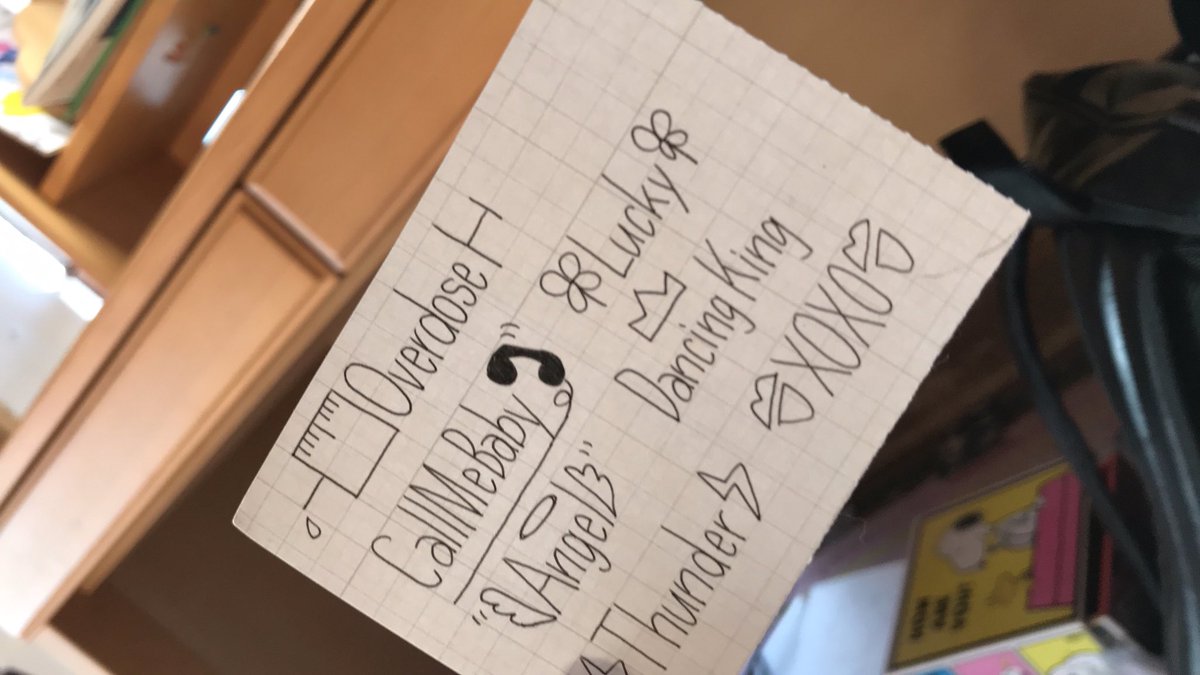 Overdose
CallMeBaby
Lucky
"Angel"
Dancing King
Thunder
XOXO